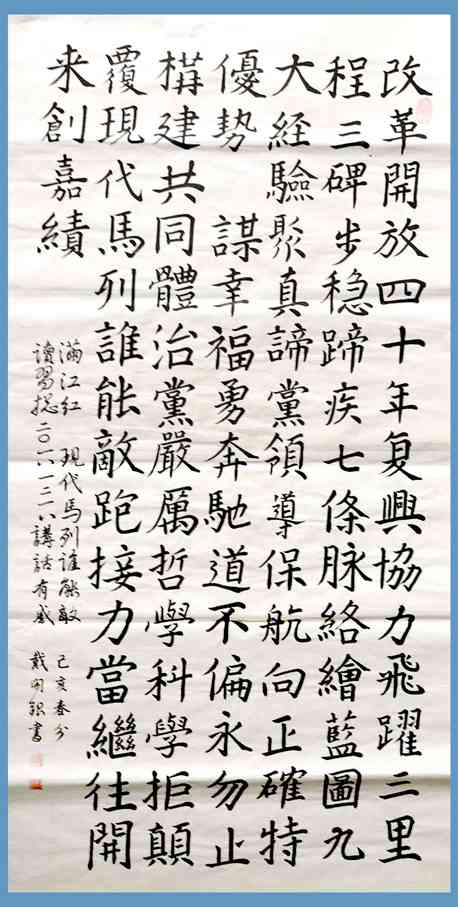 改革開放四十年复興協力飛躍三里
程三碑步稳蹄疾七條脉絡繪藍圖九
大経驗聚真諦黨領導保航向正確特
優势 謀幸福勇奔馳道不偏永勿止
構建共同體治黨嚴厲哲學科學拒顛
覆現代馬列誰能敵跑接力當繼往開
来創嘉績
滿江红 現代馬列誰能敵
讀習捴二〇一八一二一八講話有感
己亥春分
戴明銀書